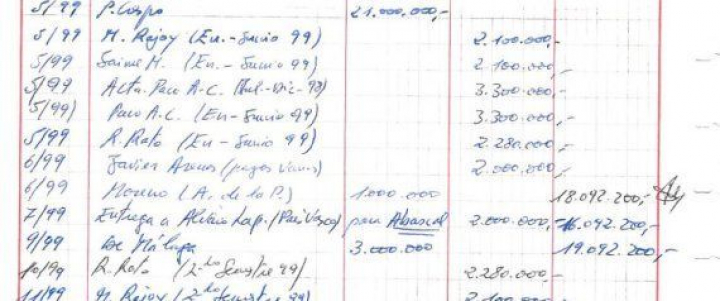 5/99 P. Crespo 21.000.000,-
5/99 M. Rajoy (En.-Junio 99) 2.100.000,-
5/99 Jaime M. (En.-Junio 99) 2.100.000,-
5/99 Acta. Paco A-C. (Jul-Dic-98) 3.300.000,-
5/99) Paco A-C. (En-Junio 99) 3.300.000,-
5/99 R. Rato (En-Junio 99) 2.280.000,-
6/99 Javier Arenas (pagos varios) 2.000.000,-
6/99 Moreno (A. de la P.) 1.000.000 18.092.200,-
7/99 Entrega a Alvaro Lap. (País Vasco) para Abascal 2.000.000,- 16.092.200,-
9/99 De Málaga 3.000.000 19.092.200,-
10/99 R. Rato (2do Semestre 99) 2.280.000,-
11/99 M. Rajoy (2do Semestre 99) 2.100.000,-